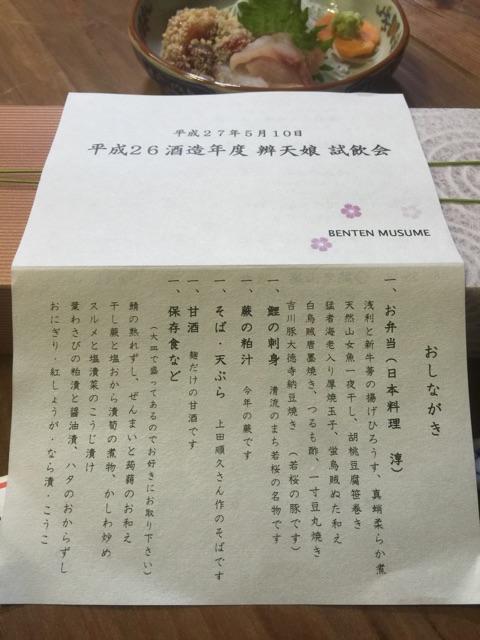 平成27年5月10日
平成26酒造年度 辨天娘 試飲会
BENTEN MUSUME
おしながき
一、お弁当(日本料理 淳)
浅利と新牛蒡の揚げひろうす、真蛸柔らか煮
天然山女魚一夜干し、胡桃豆腐笹巻き
猛者海老入り厚焼玉子、蛍烏賊ぬた和え
白烏賊唐墨焼き、つるも酢、一寸豆丸焼き
吉川豚大徳寺納豆焼き (若桜の豚です)
一、鯉の刺身 清流のまち若桜の名物です
一、蕨の粕汁 今年の蕨です
一、そば・天ぷら 上田順久さん作のそばです
一、甘酒 麹だけの甘酒です
一、保存食など
(大皿で盛ってあるのでお好きにお取り下さい)
鯖の熟れずし、ぜんまいと蒟蒻のお和え
干し蕨と塩おから漬筍の煮物、かしわ炒め
スルメと塩漬菜のこうじ漬け
葉わさびの粕漬と醤油漬、ハタのおからずし
おにぎり・紅しょうが・なら漬・こうこ